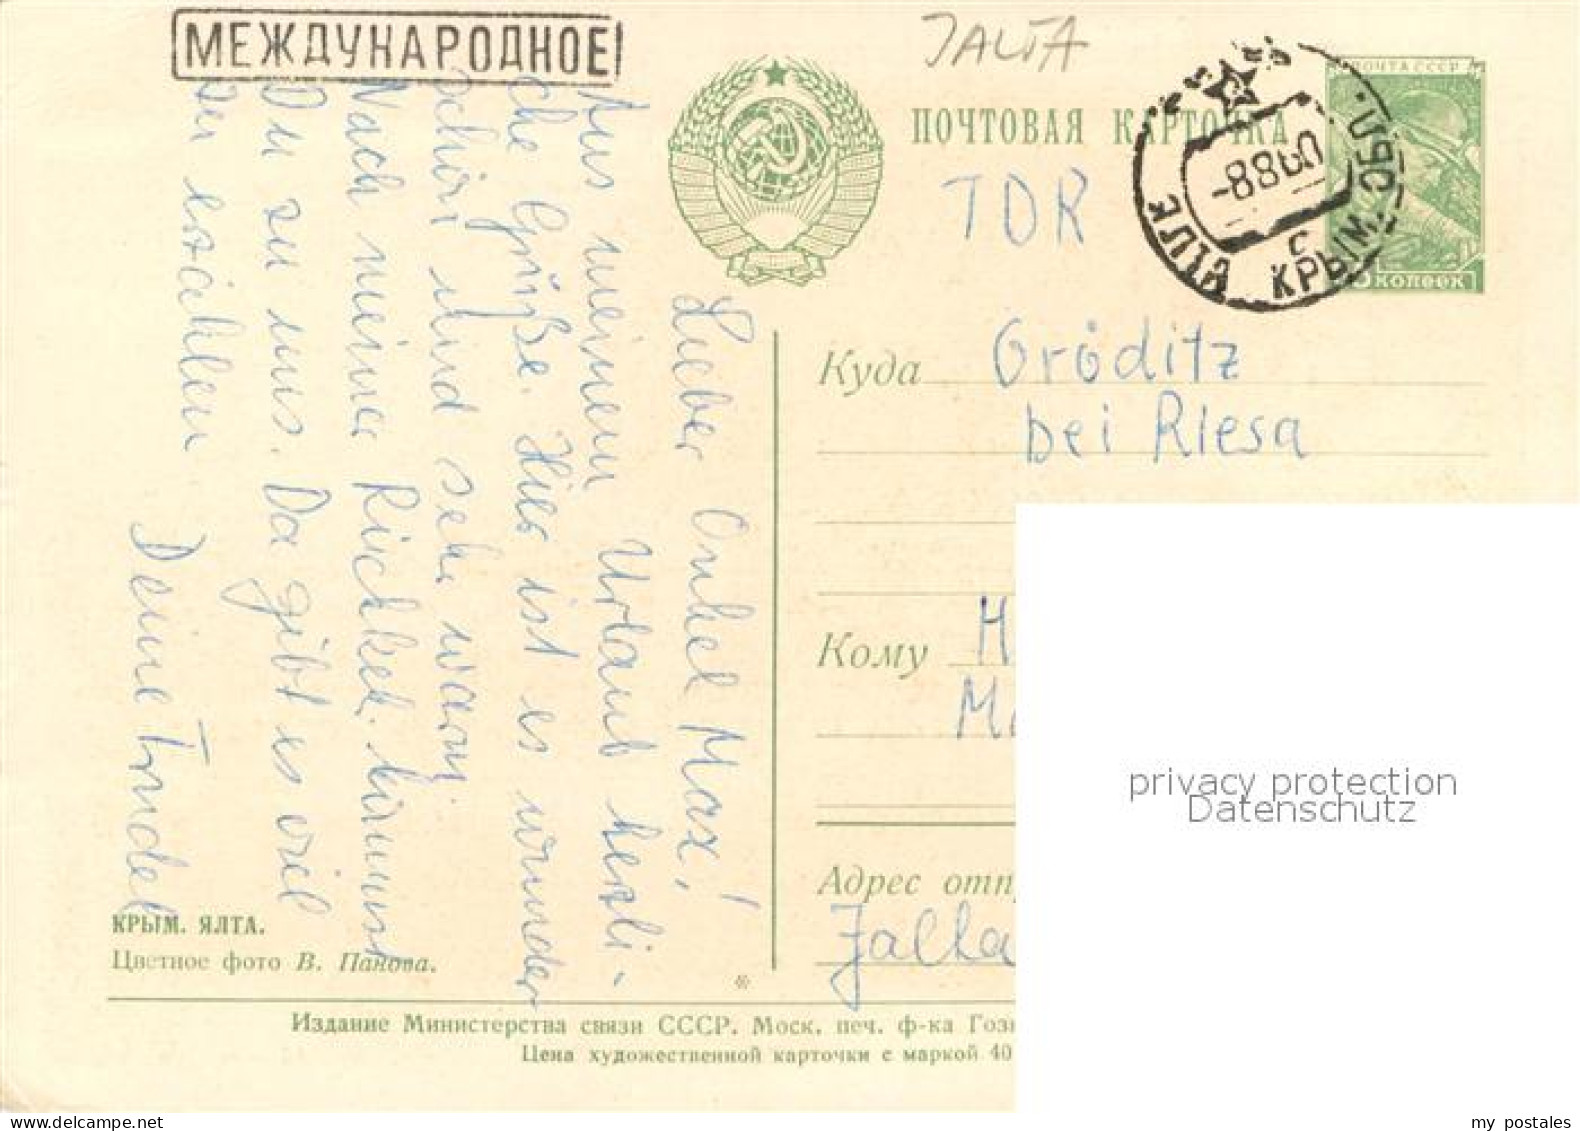 МЕЖДУНАРОДНОЕ
JALTA
ПОЧТА СССР
ПОЧТОВАЯ КАРТОЧКА
-8860
ЯЛТА КРЫМ. ОБЛ.
КОПЕЕК
TDR
Куда Gröditz
bei Riesa
Кому H
Ma
Адрес отп
Jalta
Lieber Onkel Max!
Aus meinem Urlaub herzli-
che Grüße. Hier ist es wunder
schön und sehr warm.
Nach meiner Rückkehr kommst
Du zu uns. Da gibt es viel
zu erzählen
Deine Trudel
КРЫМ. ЯЛТА.
Цветное фото В. Панова.
Издание Министерства связи СССР. Моск. печ. ф-ка Гозн
Цена художественной карточки с маркой 40
privacy protection
Datenschutz
my postales